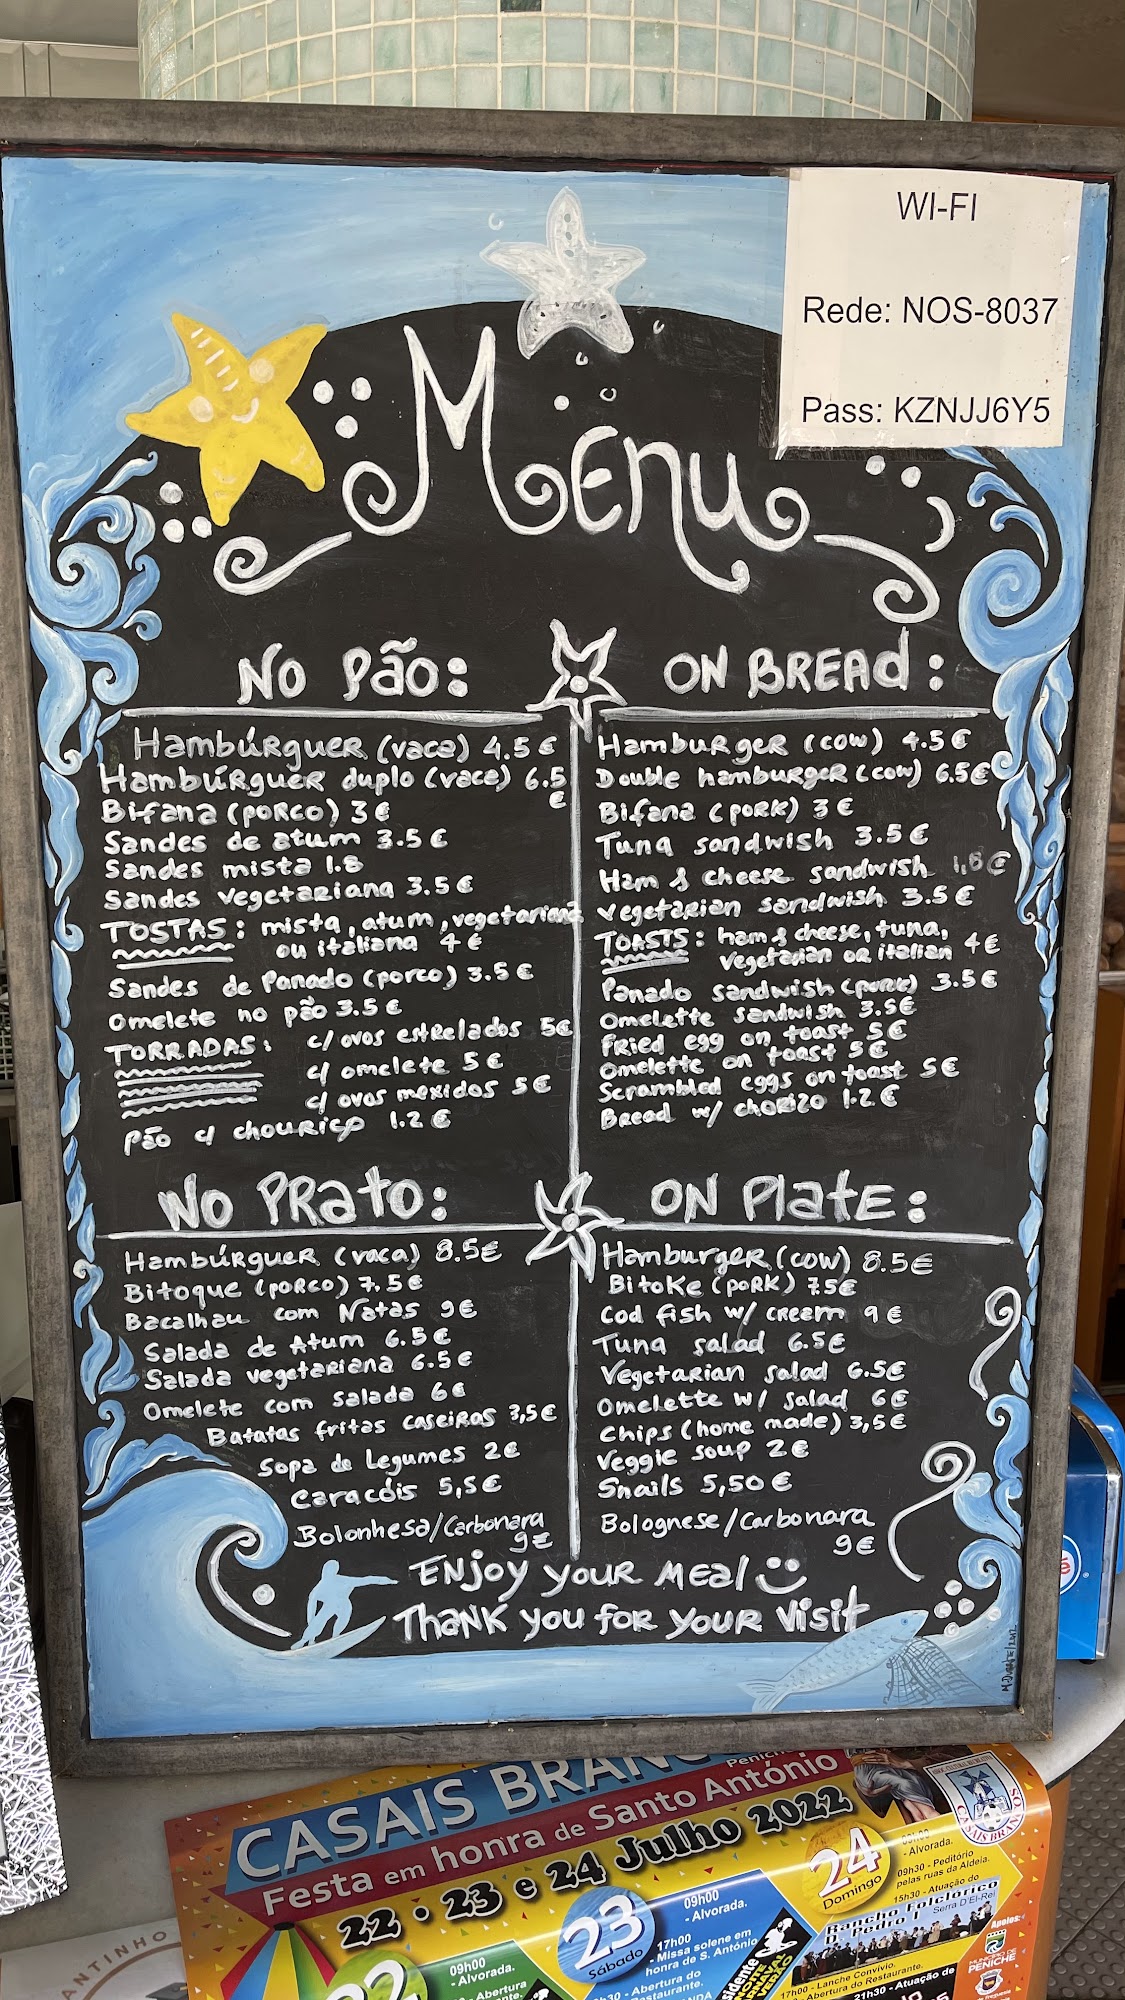 WI-FI
Rede: NOS-8037
Pass: KZNJJ6Y5
MENU
NO PÃO:
Hambúrguer (vaca) 4.5 €
Hambúrguer duplo (vaca) 6.5
€
Bifana (porco) 3 €
Sandes de atum 3.5 €
Sandes mista 1.8
Sandes vegetariana 3.5 €
TOSTAS: mista, atum, vegetariana
ou italiana 4 €
Sandes de Panado (porco) 3.5 €
Omelete no pão 3.5 €
TORRADAS: c/ ovos estrelados 5€
c/ omelete 5 €
c/ ovos mexidos 5 €
Pão c/ chouriço 1.2 €
ON BREAD:
Hamburger (cow) 4.5 €
Double hamburger (cow) 6.5€
Bifana (pork) 3 €
Tuna sandwish 3.5 €
Ham & cheese sandwish 1,8 €
Vegetarian sandwish 3.5 €
TOASTS: ham & cheese, tuna,
vegetarian or italian 4 €
Panado sandwish (pork) 3.5 €
Omelette sandwish 3.5€
Fried egg on toast 5 €
Omelette on toast 5 €
Scrambled eggs on toast 5 €
Bread w/ chorizo 1.2 €
NO PRATO:
Hambúrguer (vaca) 8.5€
Bitoque (porco) 7,5 €
Bacalhau com Natas 9 €
Salada de Atum 6.5 €
Salada vegetariana 6.5 €
Omelete com salada 6 €
Batatas fritas caseiras 3,5 €
Sopa de Legumes 2 €
Caracóis 5,5 €
Bolonhesa/Carbonara
9€
ON PLATE:
Hamburger (cow) 8.5€
Bitoke (pork) 7.5€
Cod fish w/ cream 9 €
Tuna salad 6.5 €
Vegetarian salad 6.5€
Omelette w/ salad 6 €
Chips (home made) 3,5 €
Veggie soup 2 €
Snails 5,50 €
Bolognese/Carbonara
9€
ENJOY YOUR MEAL
THANK YOU FOR YOUR VISIT
CASAIS BRANC
Peniche
Festa em honra de Santo António
22 · 23 e 24 Julho 2022
09h00
- Alvorada.
- Abertura
23
Sábado
09h00
- Alvorada.
17h00
- Missa solene em
honra de S. António
- Abertura do
Restaurante.
24
Domingo
- Alvorada.
09h30 - Peditório
pelas ruas da Aldeia.
15h30 - Atuação do
Rancho Folclórico
D. Pedro I
Serra D'El-Rei
17h00 - Lanche Convívio.
- Abertura do Restaurante.
21h30 - Atuação de
Apoios:
MUNICÍPIO DE
PENICHE
ANTINHO